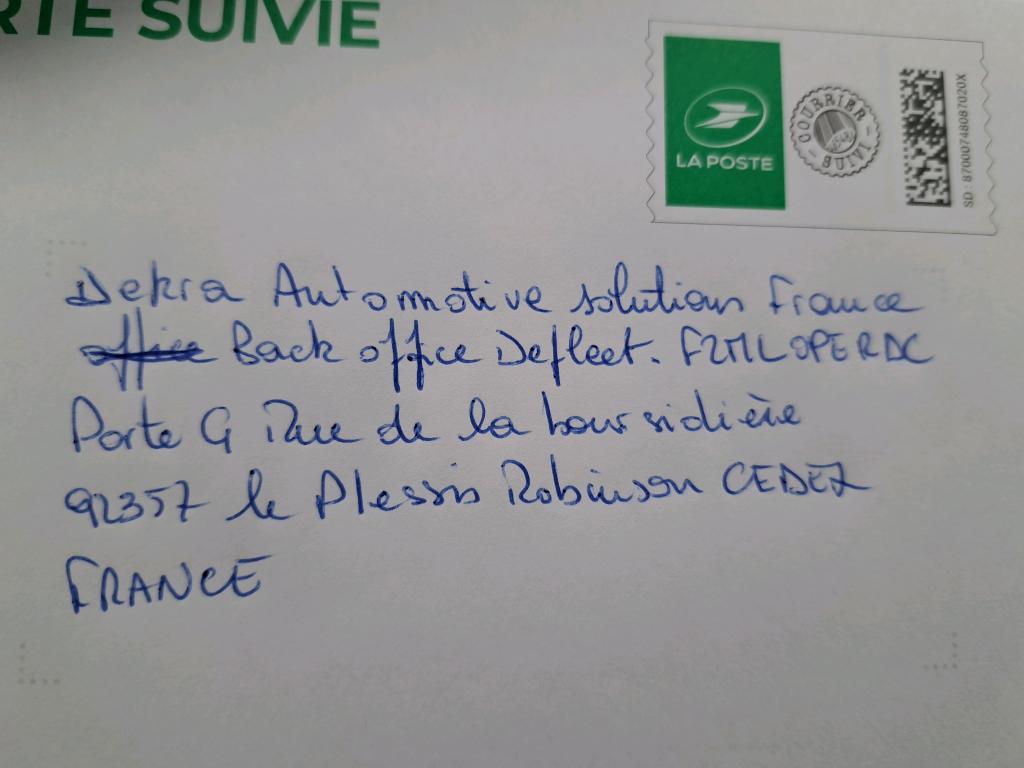 RTE SUIVIE
LA POSTE
COURRIER SUIVI
SD : 87000748087020X
Dekra Automotive solutions France
Back office Defleet. F2MLOPERDC
Porte G Rue de la boursidière
92357 le Plessis Robinson CEDEX
FRANCE